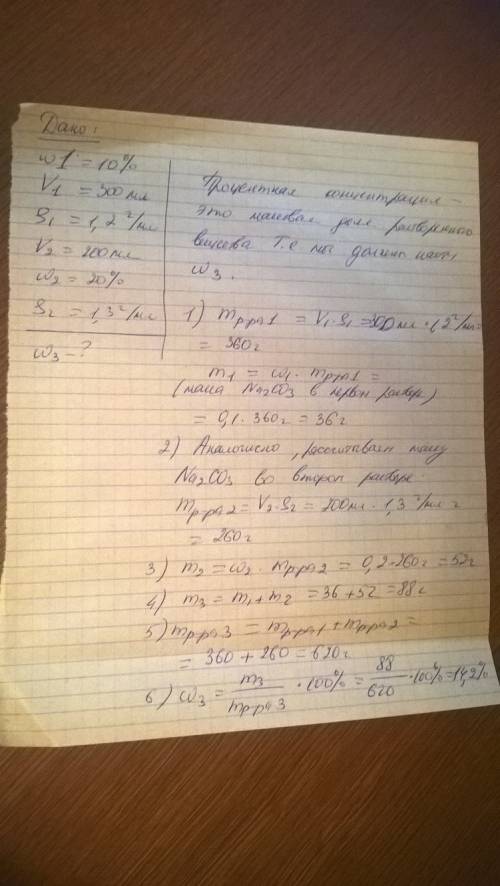 Дано:
ω1 = 10%
V1 = 300 мл
ρ1 = 1,2 г/мл
V2 = 200 мл
ω2 = 20%
ρ2 = 1,3 г/мл
ω3 - ?
Процентная концентрация –
это массовая доля растворенного
вещества Т.е мы должны найти
ω3.
1) mр-ра1 = V1·ρ1 = 300 мл · 1,2 г/мл =
= 360 г
m1 = ω1 · mр-ра1 =
(масса Na2CO3 в первом растворе)
= 0,1 · 360 г = 36 г
2) Аналогично, рассчитываем массу
Na2CO3 во втором растворе.
mр-ра2 = V2·ρ2 = 200 мл · 1,3 г/мл =
= 260 г
3) m2 = ω2 · mр-ра2 = 0,2·260 г = 52 г
4) m3 = m1 + m2 = 36 + 52 = 88 г
5) mр-ра3 = mр-ра1 + mр-ра2 =
= 360 + 260 = 620 г
6) ω3 = m3/mр-ра3 · 100% = 88/620 · 100% = 14,2%